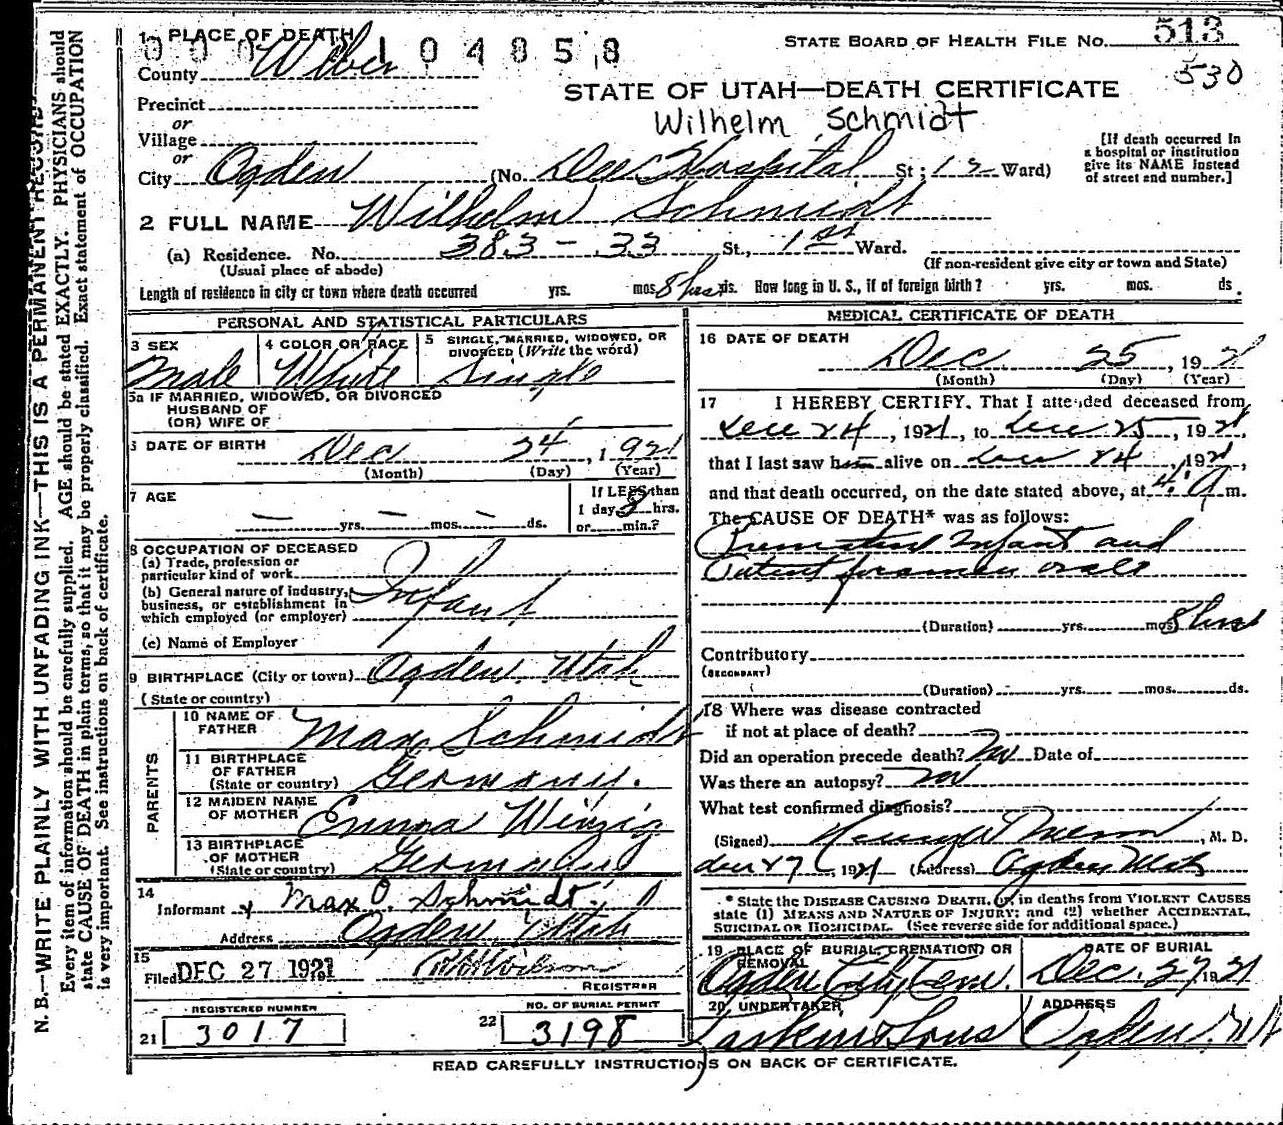 N. B.—WRITE PLAINLY WITH UNFADING INK—THIS IS A PERMANENT RECORD
Every item of information should be carefully supplied. AGE should be stated EXACTLY. PHYSICIANS should
state CAUSE OF DEATH in plain terms, so that it may be properly classified. Exact statement of OCCUPATION
is very important. See instructions on back of certificate.
1 PLACE OF DEATH
104858
STATE BOARD OF HEALTH FILE No. 513
530
County Weber
STATE OF UTAH—DEATH CERTIFICATE
Wilhelm Schmidt
Precinct
or
Village
or
City Ogden (No. Dee Hospital St; 12 Ward)
[If death occurred in
a hospital or institution
give its NAME instead
of street and number.]
2 FULL NAME Wilhelm Schmidt
(a) Residence. No. 383 - 33 St., 1st Ward.
(Usual place of abode)
(If non-resident give city or town and State)
Length of residence in city or town where death occurred yrs. mos. 8 hrs ds. How long in U. S., if of foreign birth? yrs. mos. ds.
PERSONAL AND STATISTICAL PARTICULARS
3 SEX
Male
4 COLOR OR RACE
White
5 SINGLE, MARRIED, WIDOWED, OR
DIVORCED (Write the word)
Single
5a IF MARRIED, WIDOWED, OR DIVORCED
HUSBAND OF
(OR) WIFE OF
6 DATE OF BIRTH Dec 24, 1921
(Month) (Day) (Year)
7 AGE
— yrs. — mos. — ds.
If LESS than
1 day 8 hrs.
or min.?
8 OCCUPATION OF DECEASED
(a) Trade, profession or
particular kind of work
(b) General nature of industry,
business, or establishment in
which employed (or employer)
Infant
(c) Name of Employer
9 BIRTHPLACE (City or town) Ogden, Utah
(State or country)
PARENTS
10 NAME OF
FATHER Max Schmidt
11 BIRTHPLACE
OF FATHER
(State or country) Germany.
12 MAIDEN NAME
OF MOTHER Emma Winzig
13 BIRTHPLACE
OF MOTHER
(State or country) Germany
14
Informant x Max O. Schmidt
Address Ogden Utah
15
Filed DEC 27 1921 Wilson
REGISTRAR
REGISTERED NUMBER
21 3017
NO. OF BURIAL PERMIT
22 3198
MEDICAL CERTIFICATE OF DEATH
16 DATE OF DEATH
Dec 25, 1921
(Month) (Day) (Year)
17 I HEREBY CERTIFY, That I attended deceased from
Dec 24, 1921, to Dec 25, 1921,
that I last saw him alive on Dec 24, 1921,
and that death occurred, on the date stated above, at 4 a m.
The CAUSE OF DEATH* was as follows:
Premature Infant and
Patent foramen ovale
(Duration) yrs. mos. 8 hrs
Contributory
(SECONDARY)
(Duration) yrs. mos. ds.
18 Where was disease contracted
if not at place of death?
Did an operation precede death? No Date of
Was there an autopsy? No
What test confirmed diagnosis?
(Signed) , M. D.
Dec 27, 1921 (Address) Ogden Utah
* State the DISEASE CAUSING DEATH, or, in deaths from VIOLENT CAUSES
state (1) MEANS AND NATURE OF INJURY; and (2) whether ACCIDENTAL,
SUICIDAL OR HOMICIDAL. (See reverse side for additional space.)
19 PLACE OF BURIAL, CREMATION OR
REMOVAL
Ogden City Cem.
DATE OF BURIAL
Dec. 27 1921
20 UNDERTAKER
Larkin & Sons
ADDRESS
Ogden, Ut
READ CAREFULLY INSTRUCTIONS ON BACK OF CERTIFICATE.